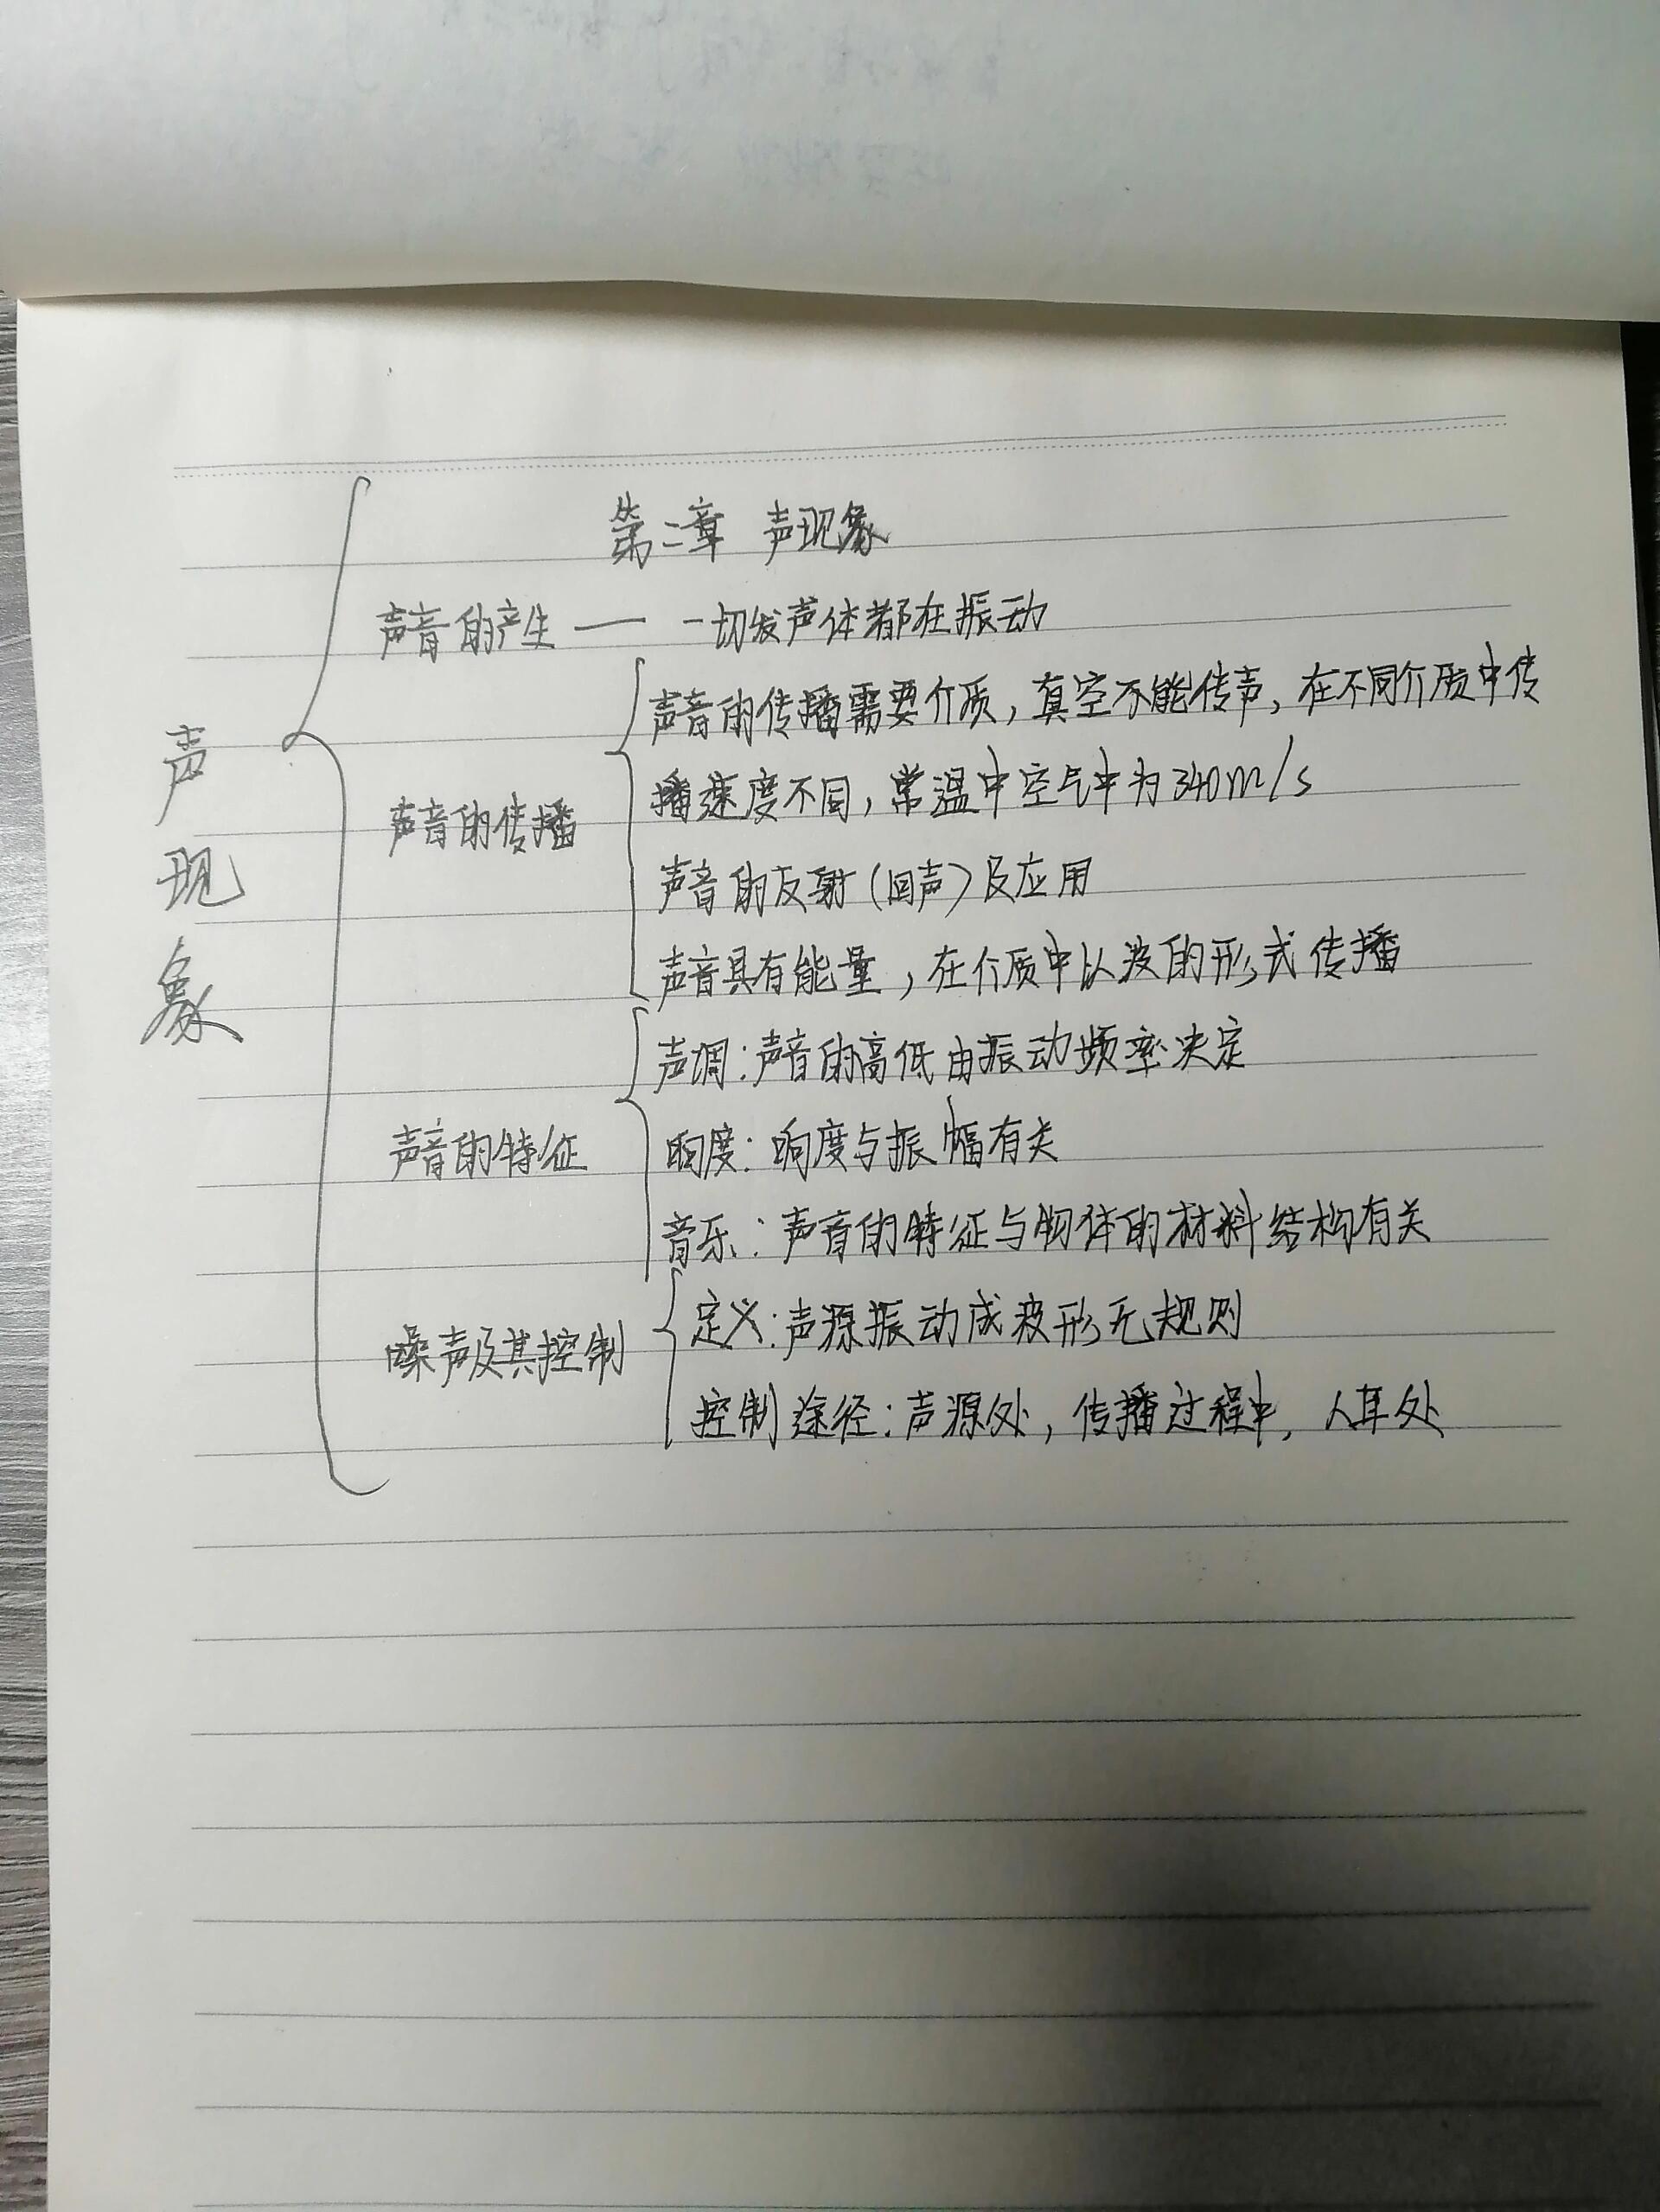 第二章 声现象
声现象
声音的产生 —— 一切发声体都在振动
声音的传播
声音的传播需要介质,真空不能传声,在不同介质中传
播速度不同,常温中空气中为340m/s
声音的反射(回声)及应用
声音具有能量,在介质中以波的形式传播
声音的特征
声调:声音的高低由振动频率决定
响度:响度与振幅有关
音乐:声音的特征与物体的材料结构有关
噪声及其控制
定义:声源振动成波形无规则
控制途径:声源处,传播过程中,人耳处